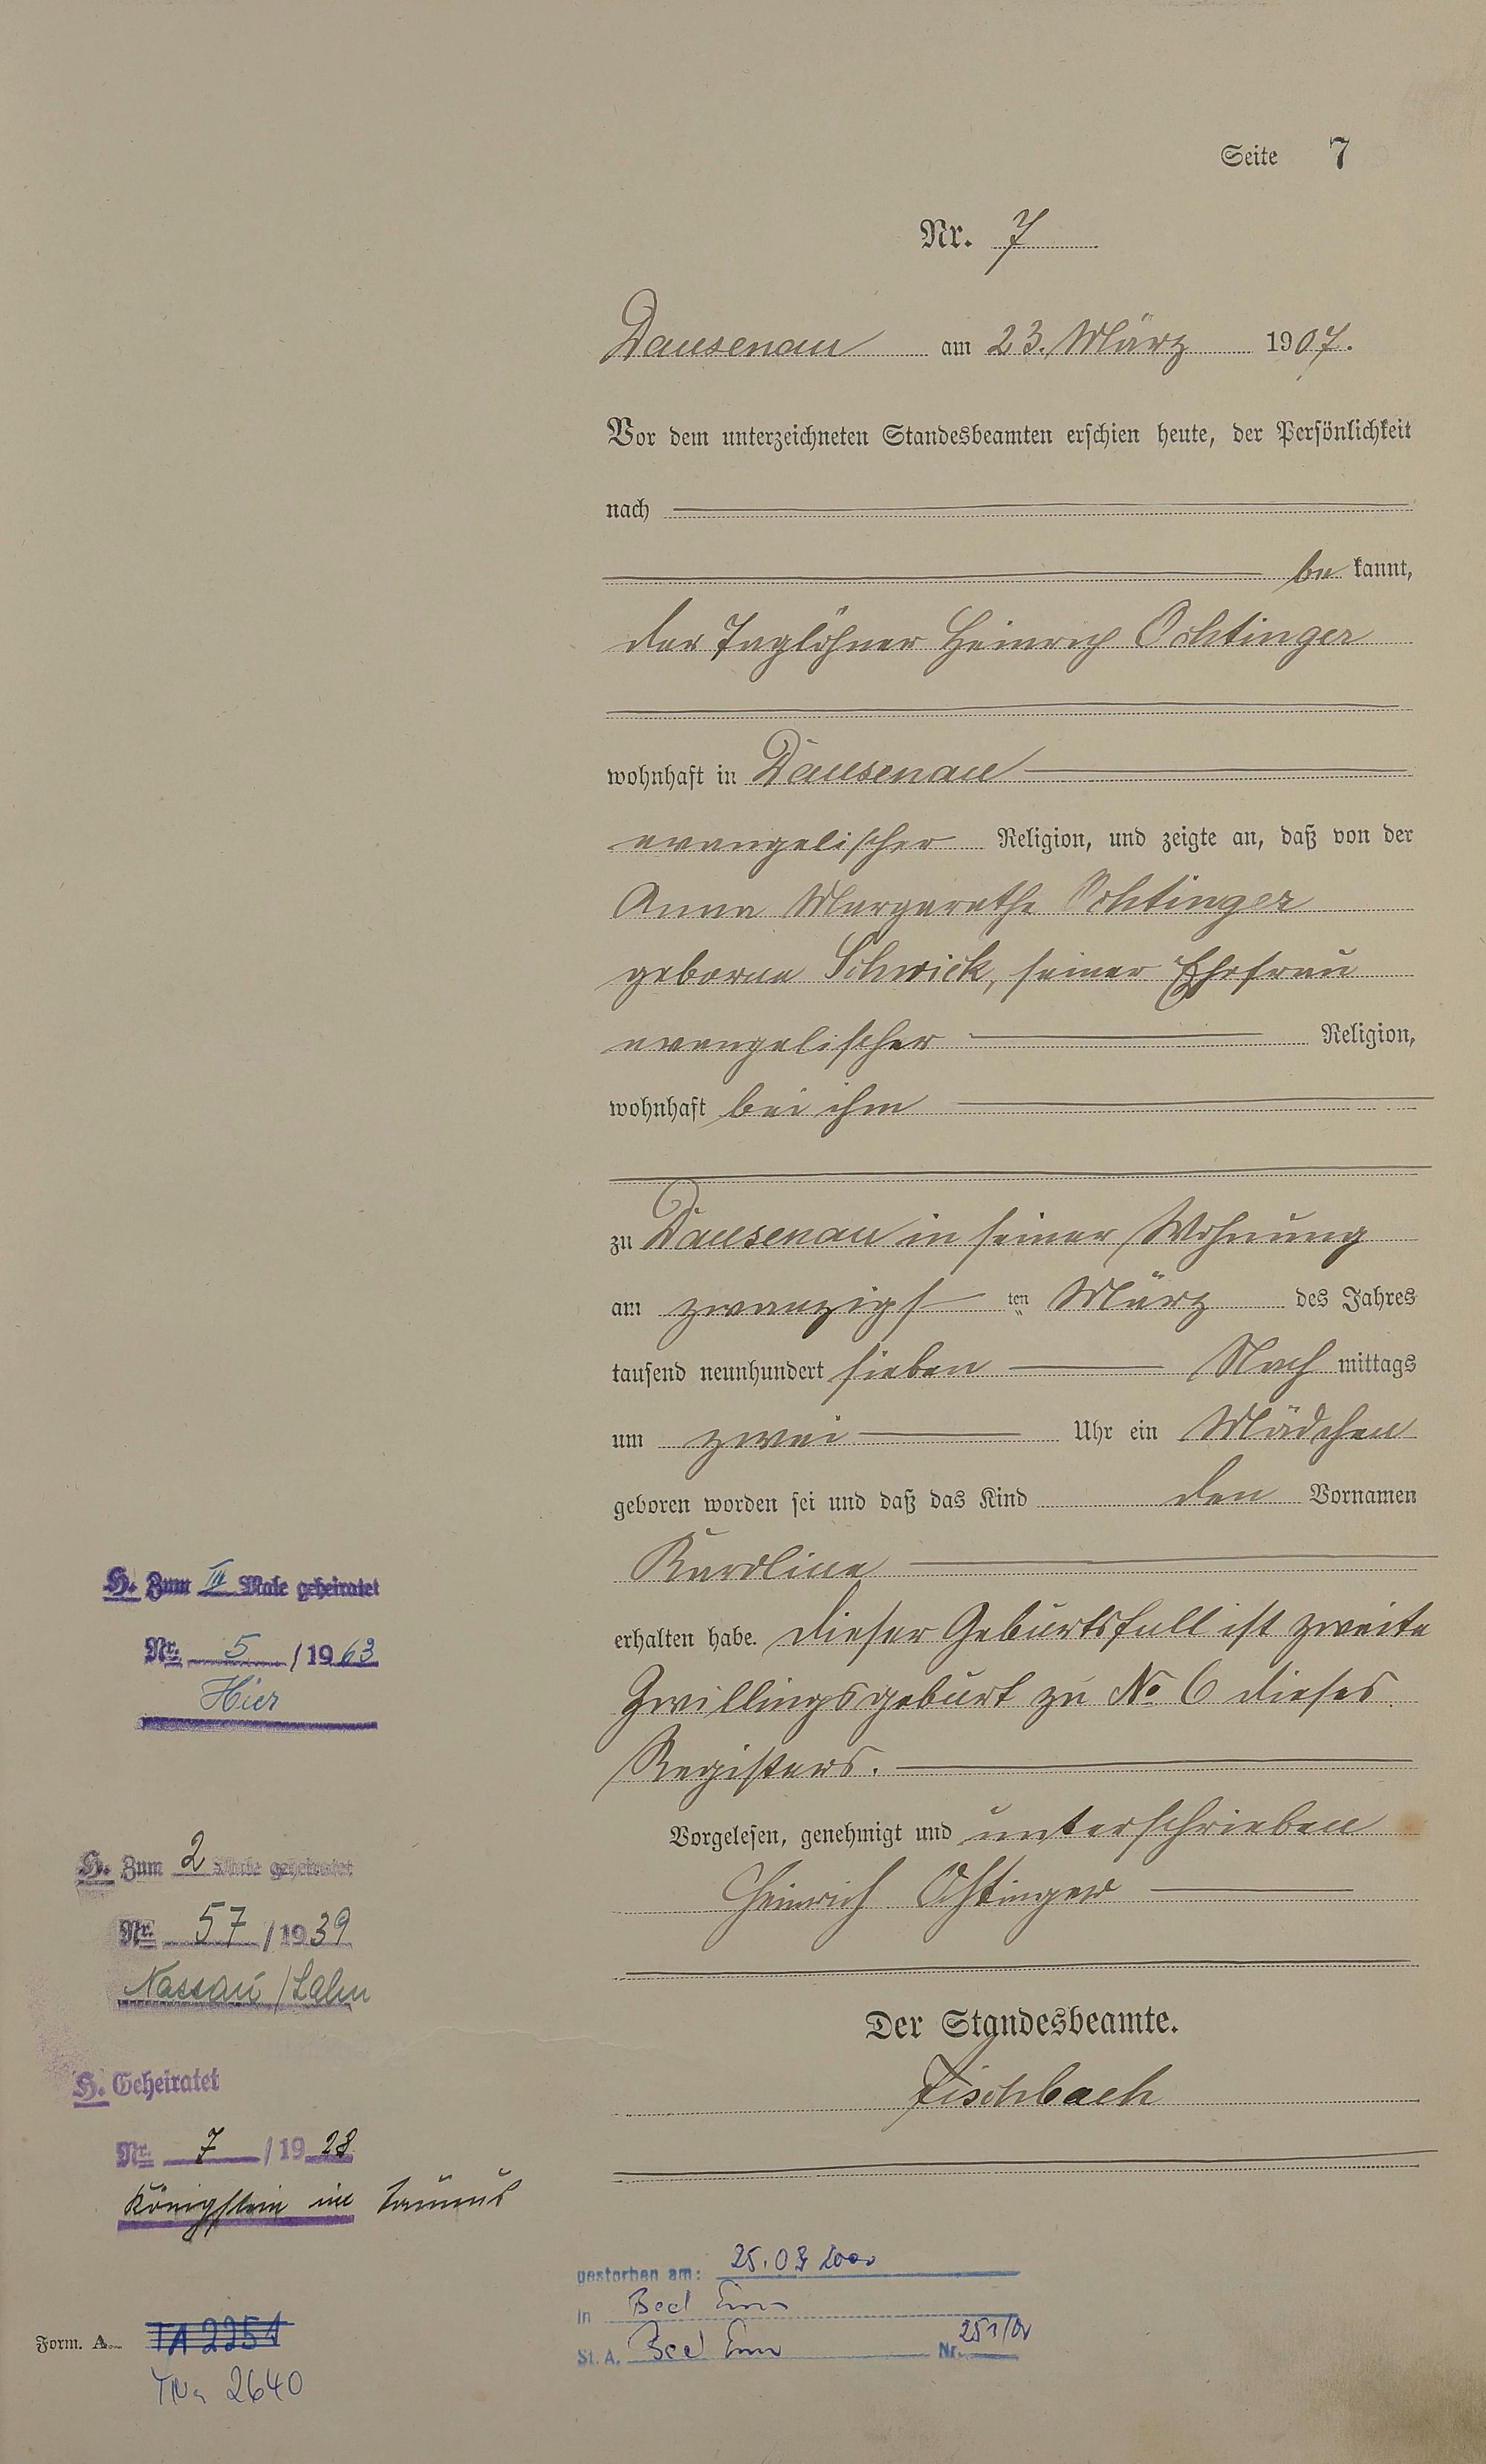 Seite 7
Nr. 7
Dausenau am 23. März 1907.
Vor dem unterzeichneten Standesbeamten erschien heute, der Persönlichkeit
nach
be kannt,
der Taglöhner Heinrich Ochtinger
wohnhaft in Dausenau
evangelischer Religion, und zeigte an, daß von der
Anna Margarethe Ochtinger
geborne Schwick, seiner Ehefrau
evangelischer Religion,
wohnhaft bei ihm
zu Dausenau in seiner Wohnung
am zwanzigs ten März des Jahres
tausend neunhundert sieben Nach mittags
um zwei Uhr ein Mädchen
geboren worden sei und daß das Kind den Vornamen
Karoline
erhalten habe. Dieser Geburtsfall ist zweite
Zwillingsgeburt zu No 6 dieses
Registers.
Vorgelesen, genehmigt und unterschrieben
Heinrich Ochtinger
Der Standesbeamte.
Fischbach
H. Zum III Male geheiratet
Nr. 5 / 1963
Hier
H. Zum 2 Male geheiratet
Nr. 57 / 1939
Nassau / Lahn
H. Geheiratet
Nr. 7 / 1928
Königstein im Taunus
gestorben am: 25.03 2000
in Bad Ems
St. A. Bad Ems Nr. 251/00
Form. A.
TA 2254
2640